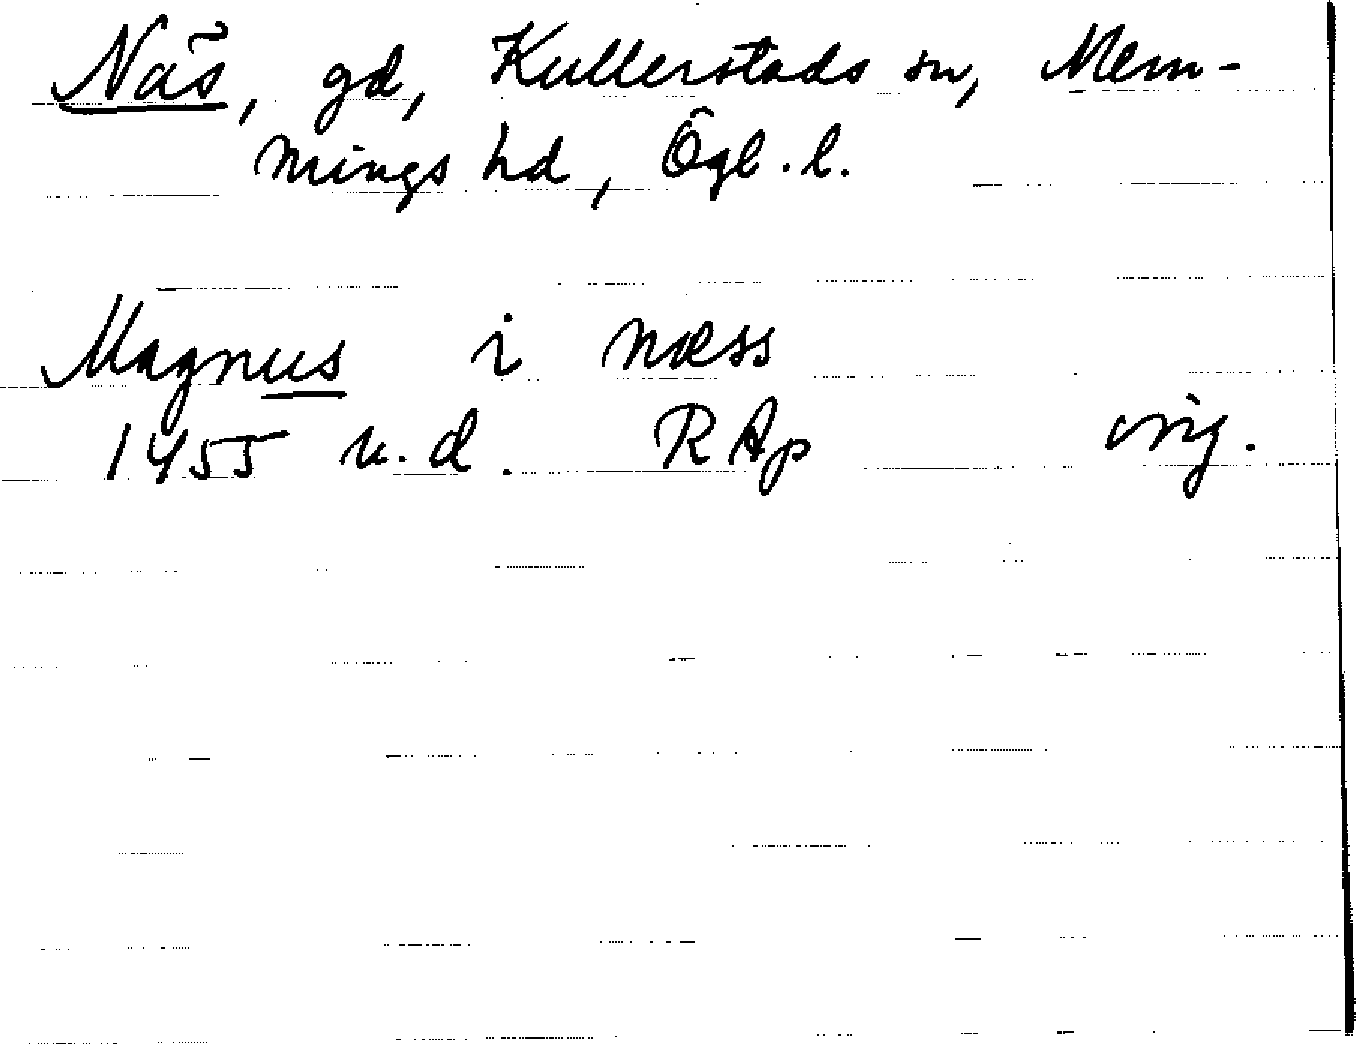 Näs, gd, Kullerstads sn, Mem-
mings hd, Ögl. l.
Magnus i næss
1455 u. d. RAp orig.